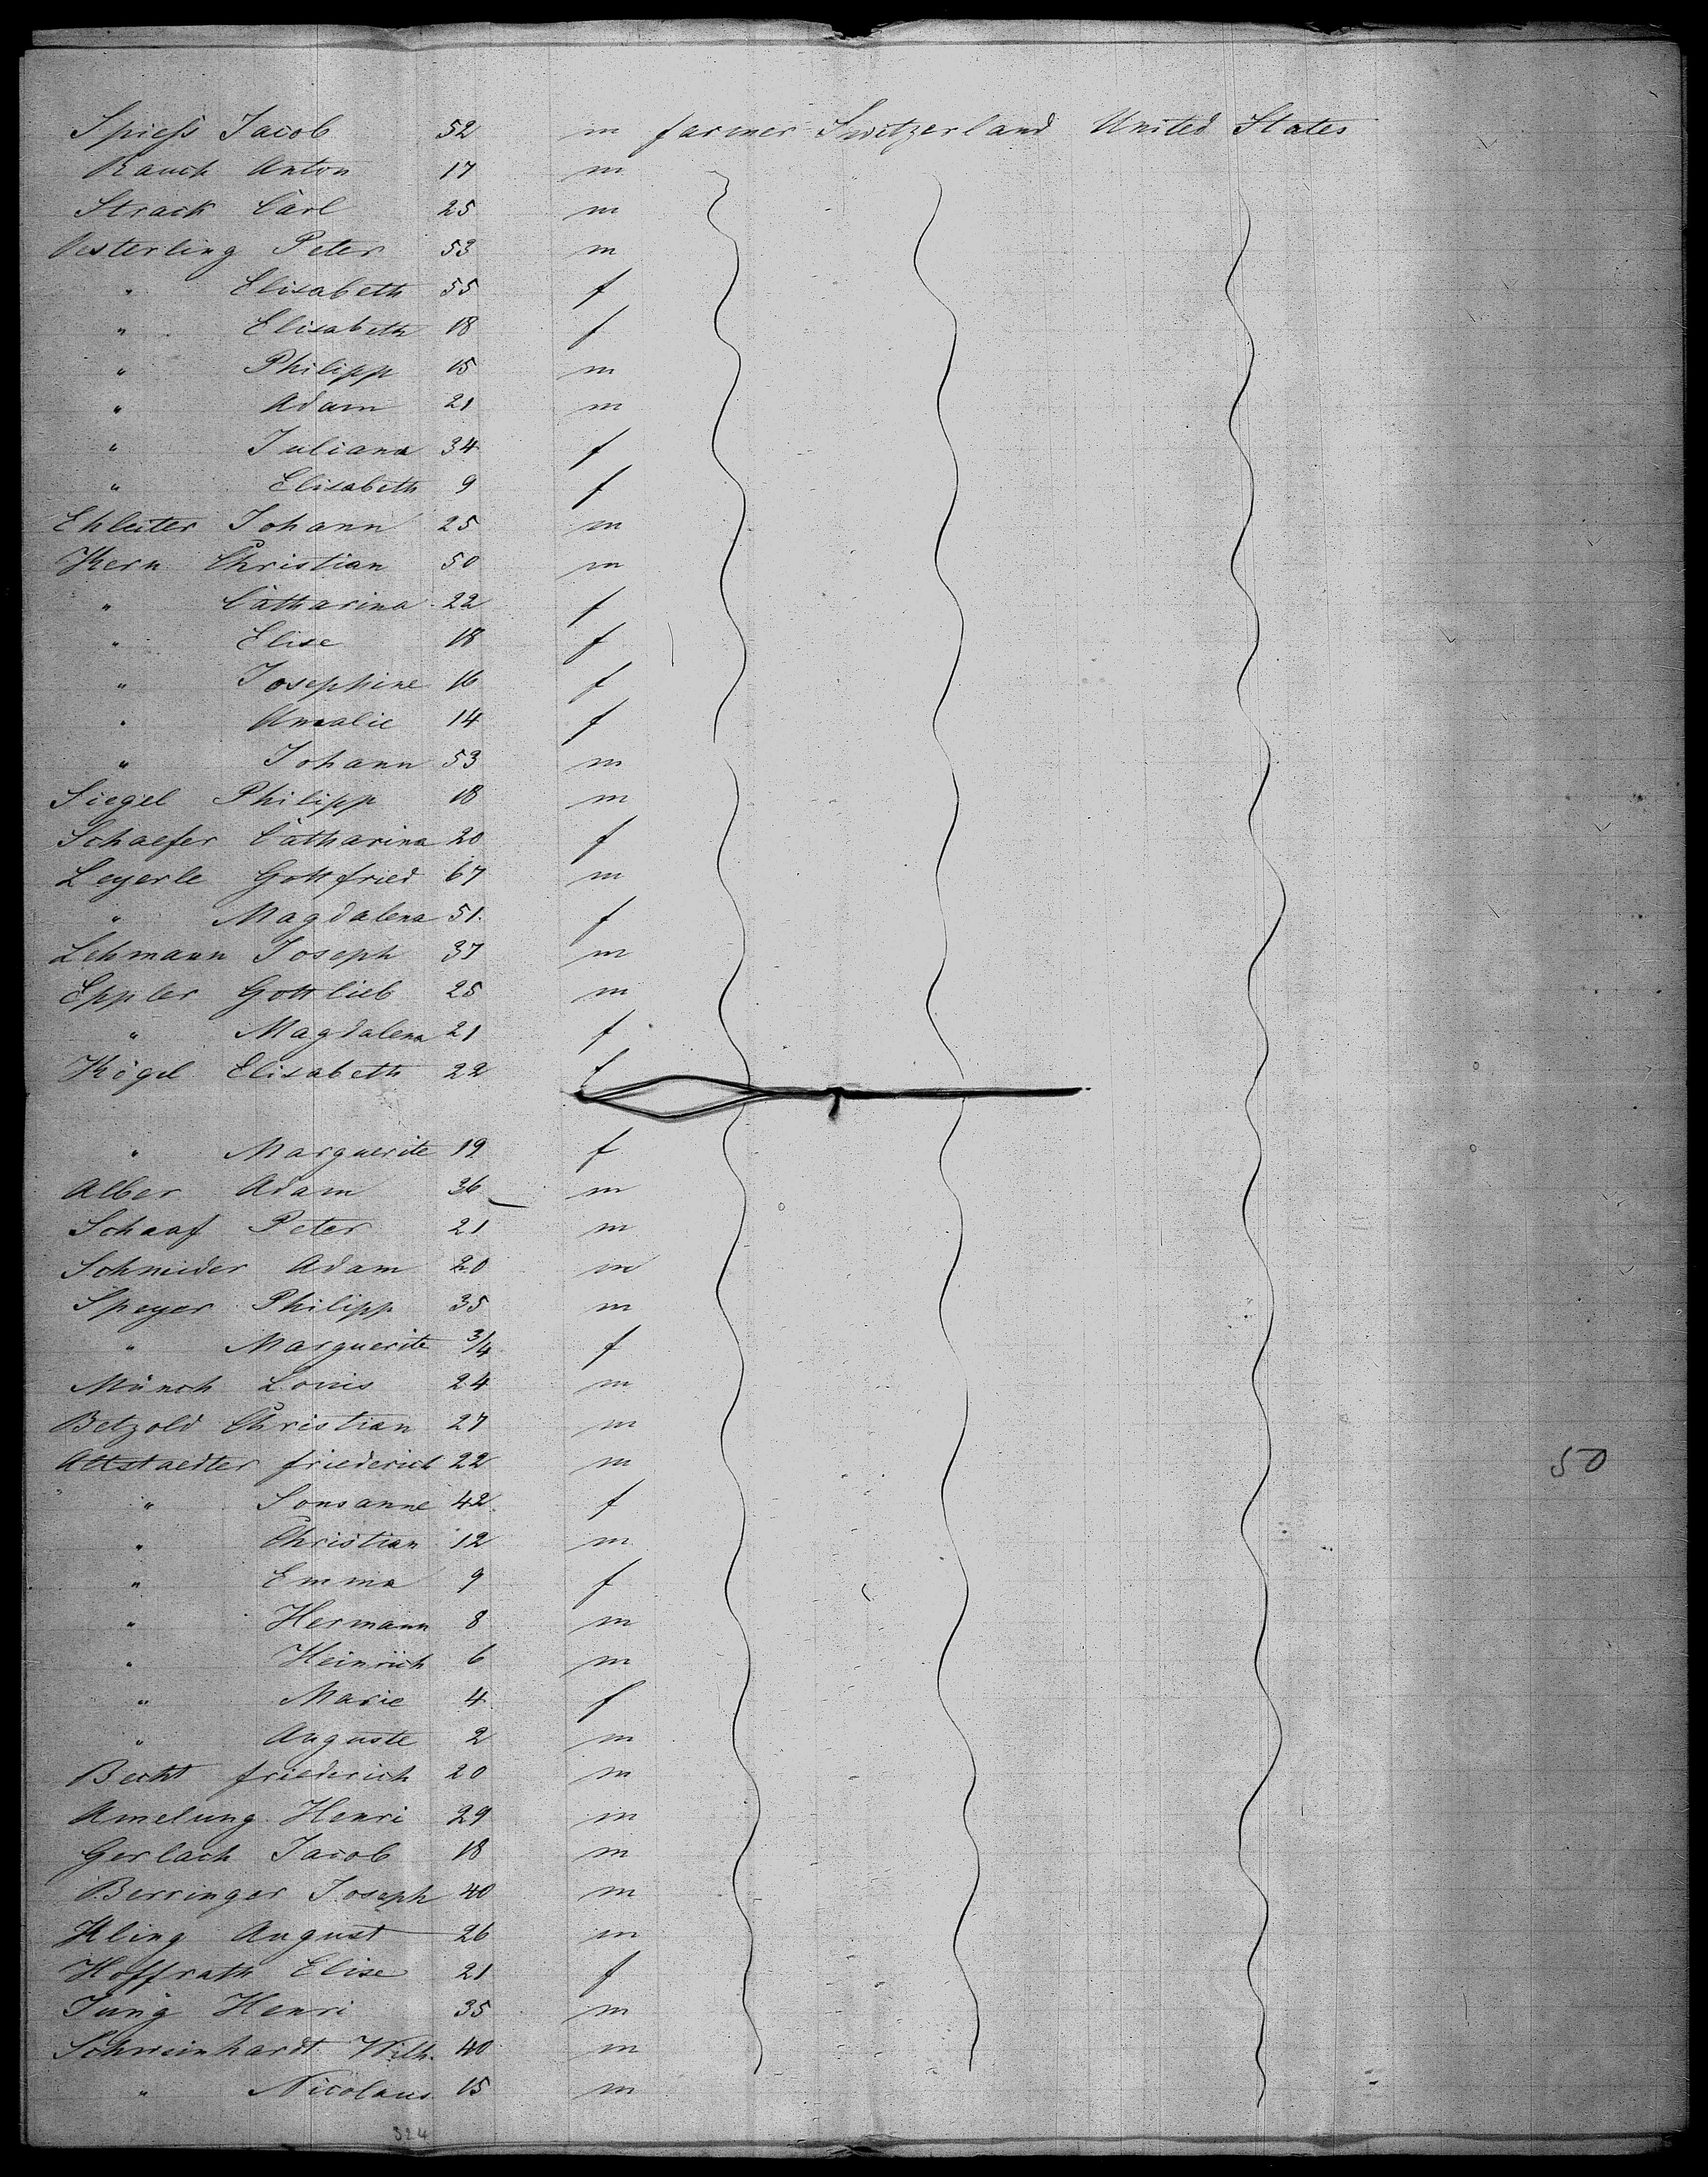 Spiess Jacob 52 m farmer Switzerland United States
Rauch Anton 17 m
Strack Carl 25 m
Oesterling Peter 53 m
" Elisabeth 55 f
" Elisabeth 18 f
" Philipp 15 m
" Adam 21 m
" Juliana 34 f
" Elisabeth 9 f
Ehleiter Johann 25 m
Kern Christian 50 m
" Catharina 22 f
" Elise 18 f
" Josephine 16 f
" Amalie 14 f
" Johann 53 m
Siegel Philipp 18 m
Schaefer Catharina 20 f
Leyerle Gottfried 67 m
" Magdalena 51 f
Lehmann Joseph 37 m
Eppler Gottlieb 25 m
" Magdalena 21 f
Kögel Elisabeth 22 f
" Marguerite 19 f
Alber Adam 36 m
Schaaf Peter 21 m
Schneider Adam 20 m
Speyer Philipp 35 m
" Marguerite 3/4 f
Münch Louis 24 m
Betzold Christian 27 m
Altstaedter friederich 22 m
50
" Sousanne 42 f
" Christian 12 m
" Emma 9 f
" Hermann 8 m
" Heinrich 6 m
" Marie 4 f
" Auguste 2 m
Becht friederich 20 m
Amelung Henri 29 m
Gerlach Jacob 18 m
Berringer Joseph 40 m
Kling August 26 m
Hoffrath Elise 21 f
Jung Henri 35 m
Schweinhardt Wilh. 40 m
" Nicolaus 15 m
324